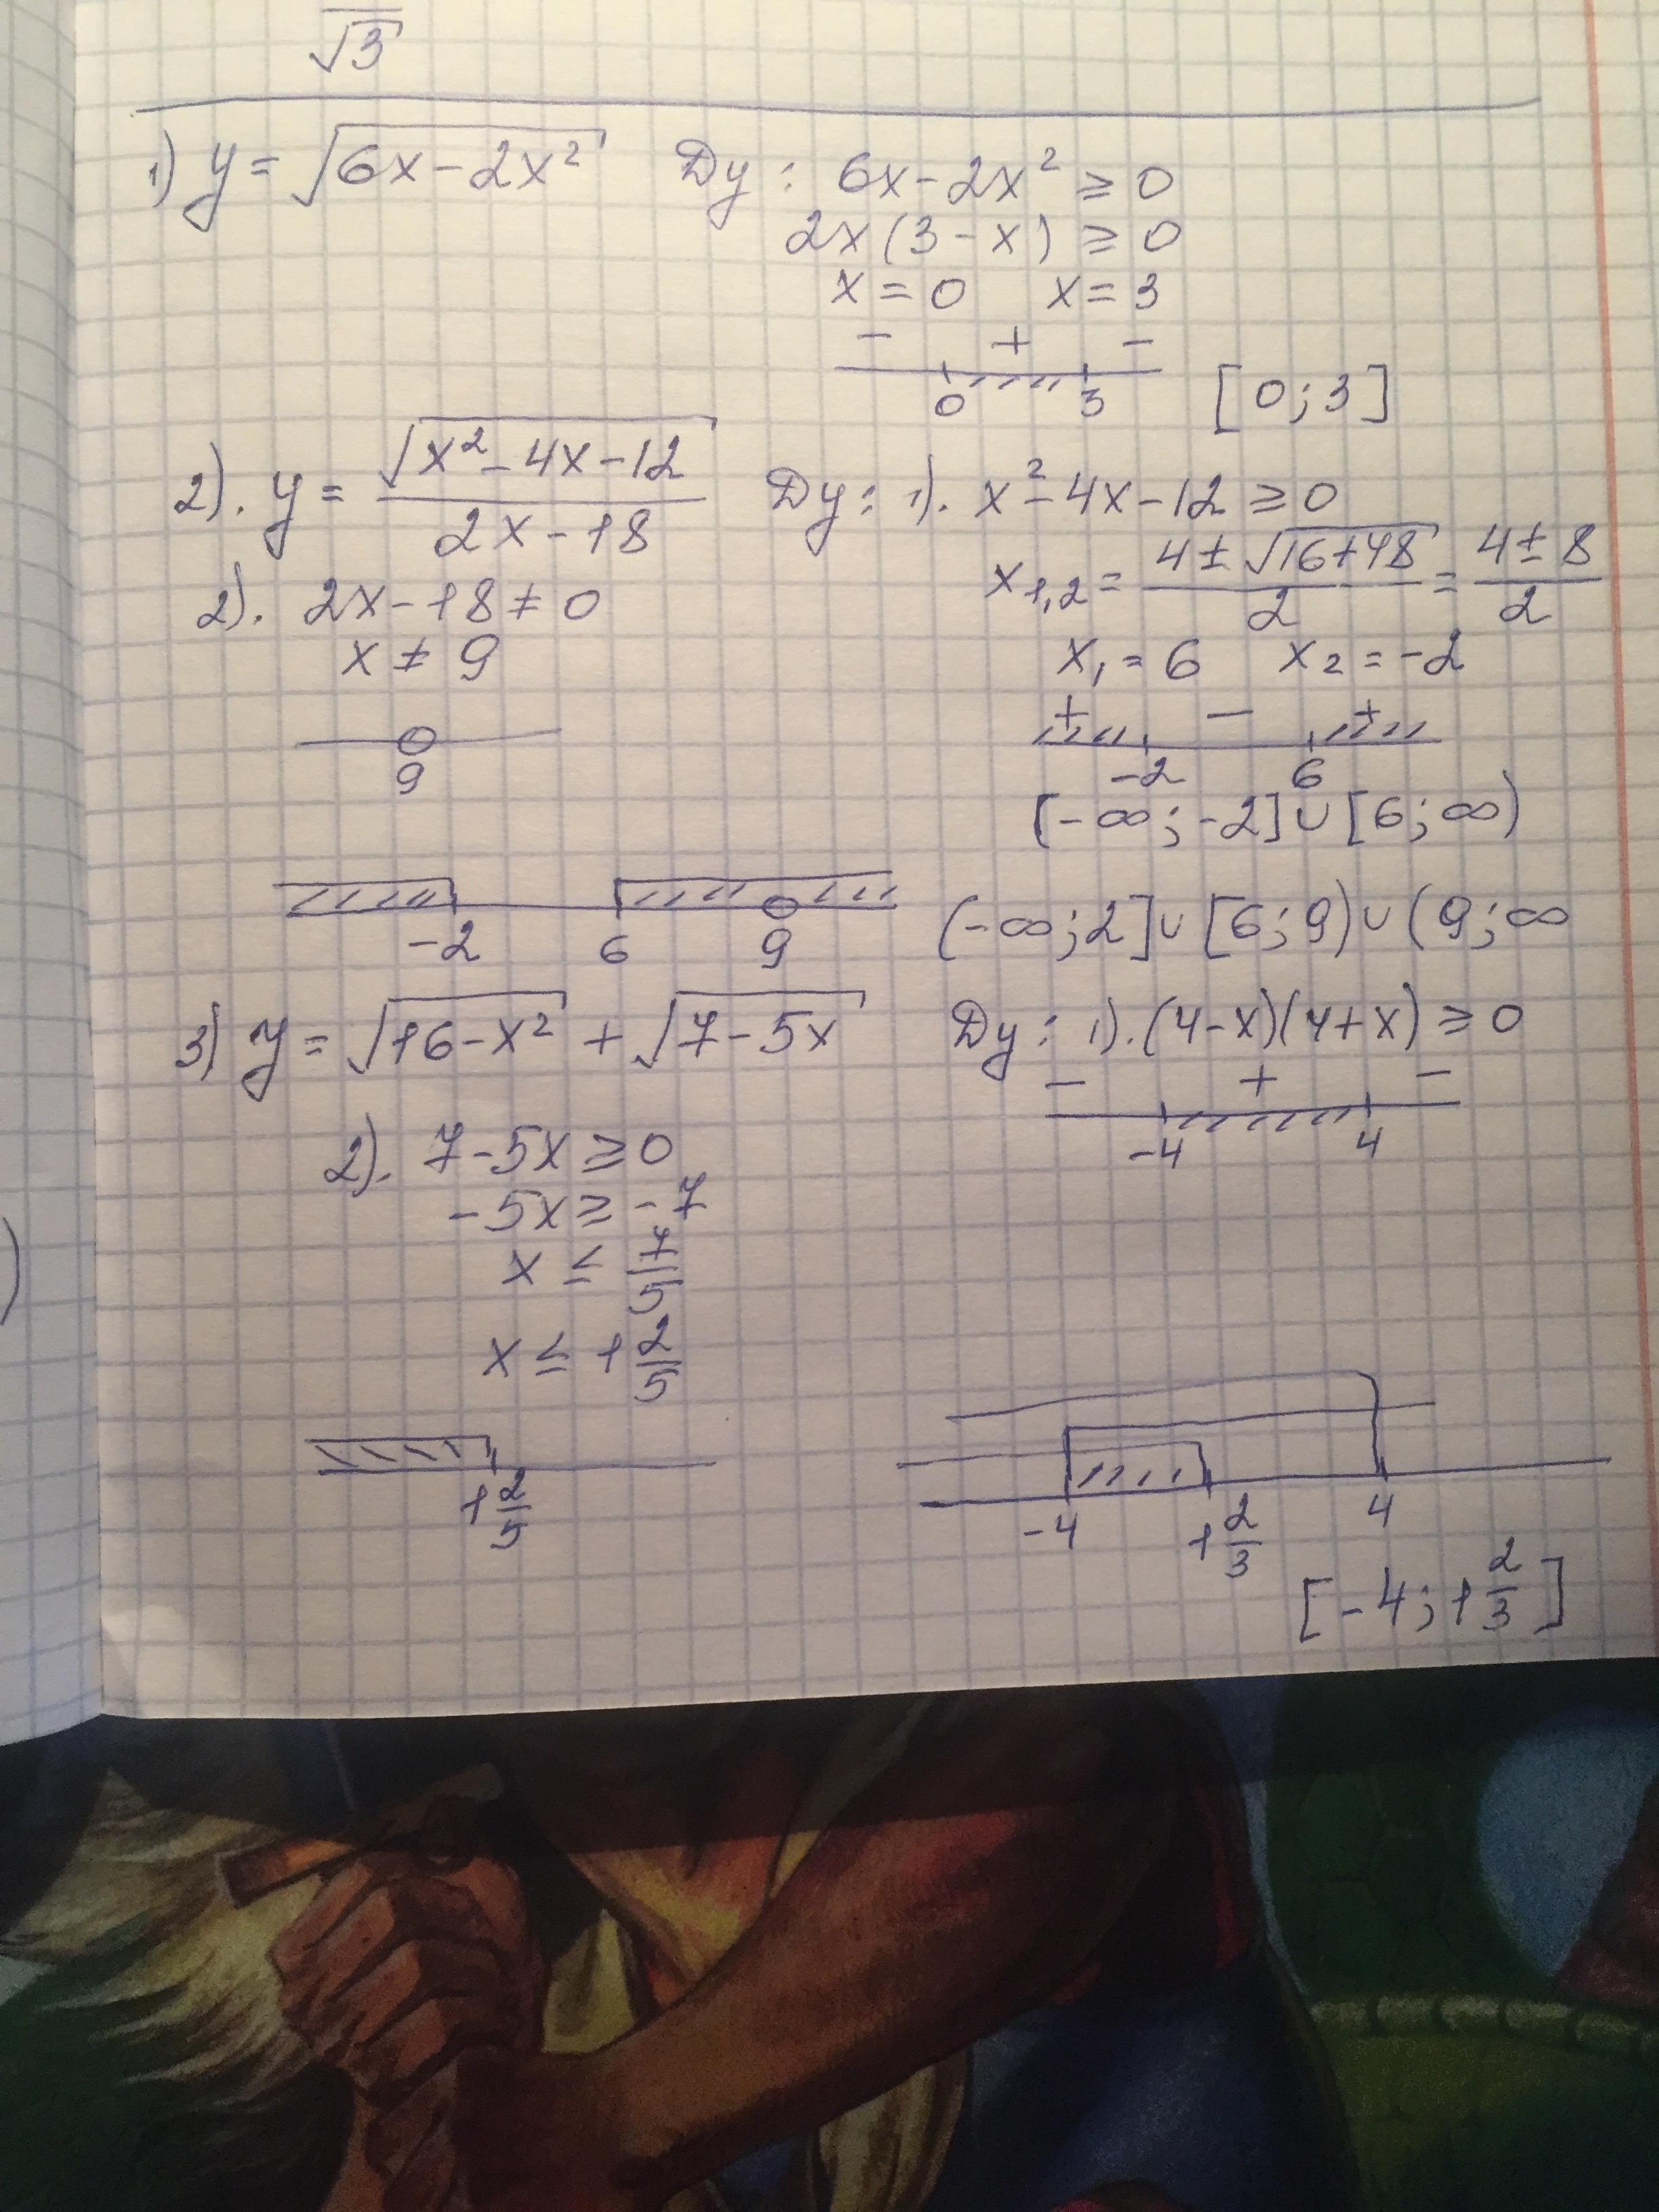 √3
1) y = √(6x - 2x²) Dy: 6x - 2x² ≥ 0
2x(3 - x) ≥ 0
x = 0 x = 3
- + -
0 3 [0; 3]
2). y = √(x² - 4x - 12) / (2x - 18) Dy: 1). x² - 4x - 12 ≥ 0
x₁,₂ = (4 ± √(16 + 48)) / 2 = (4 ± 8) / 2
x₁ = 6 x₂ = -2
+ - +
-2 6
[-∞; -2] ∪ [6; ∞)
2). 2x - 18 ≠ 0
x ≠ 9
9
-2 6 9 (-∞; 2] ∪ [6; 9) ∪ (9; ∞
3) y = √(16 - x²) + √(7 - 5x) Dy: 1). (4 - x)(4 + x) ≥ 0
- + -
-4 4
2). 7 - 5x ≥ 0
-5x ≥ -7
x ≤ 7/5
x ≤ 1 2/5
1 2/5
-4 1 2/3 4
[-4; 1 2/3]
)